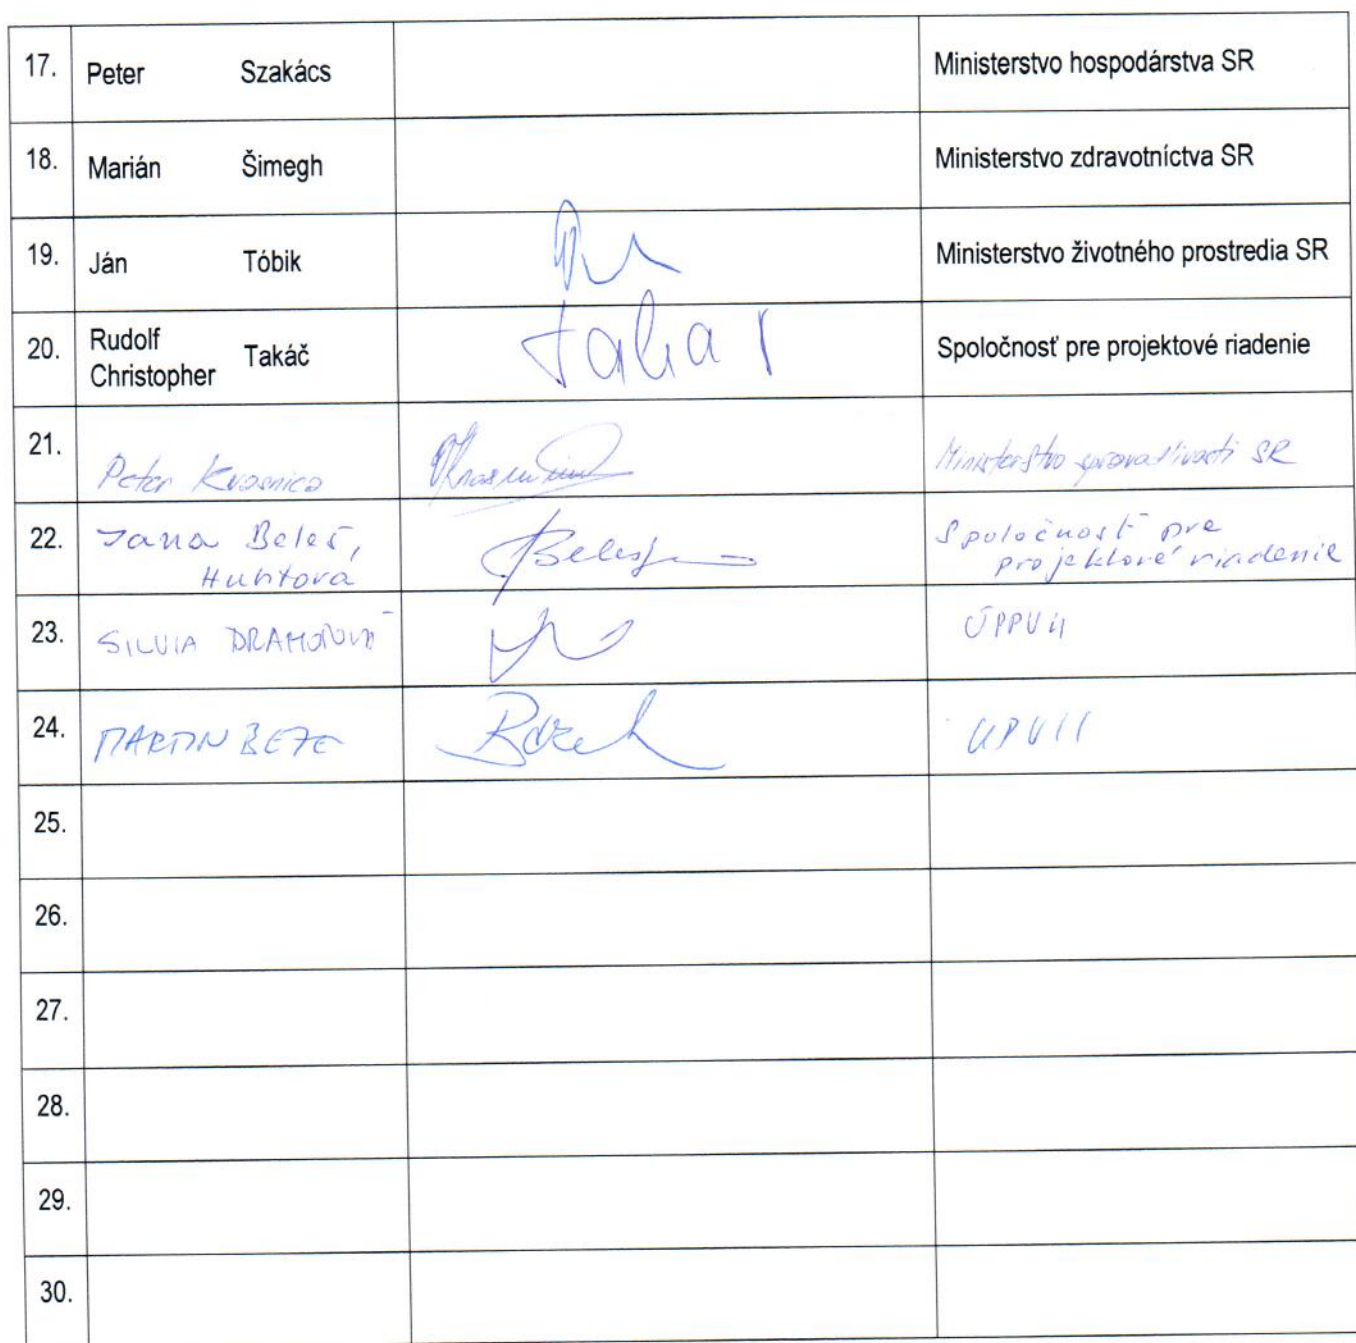 17. Peter Szakács Ministerstvo hospodárstva SR
18. Marián Šimegh Ministerstvo zdravotníctva SR
19. Ján Tóbik Ministerstvo životného prostredia SR
20. Rudolf Christopher Takáč Spoločnosť pre projektové riadenie
21. Peter Kvasnica Ministerstvo spravodlivosti SR
22. Jana Beleš, Spoločnosť pre
projektové riadenie
23. SILVIA ÚPPVII
24. MARTIN UPVII
25.
26.
27.
28.
29.
30.